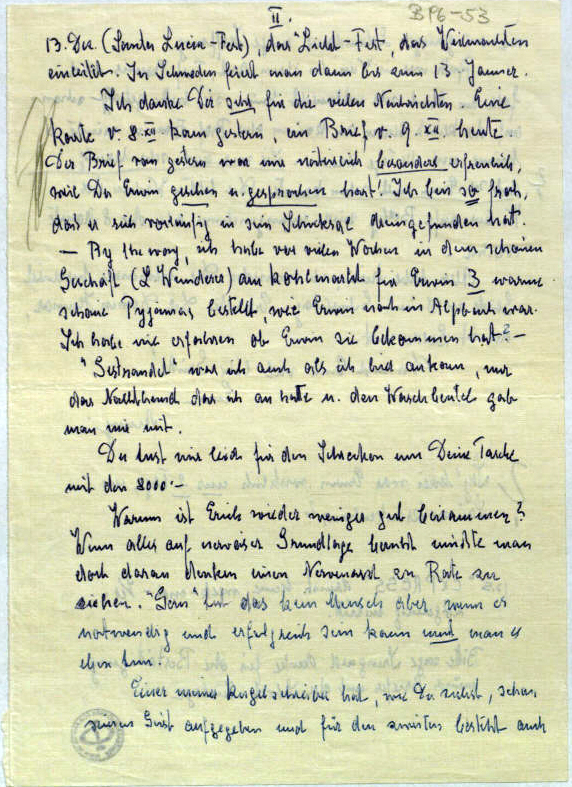 II.
BP6-53
13. Dez. (Sancta Lucia-Fest), das "Licht-Fest, das Weihnachten
einleitet. In Schweden feiert man dann bis zum 13 Jänner.
Ich danke Dir sehr für die vielen Nachrichten. Eine
Karte v. 8. XII kam gestern, ein Brief v. 9. XII. heute
Der Brief von gestern war mir natürlich besonders erfreulich,
weil Du Erwin gesehen u. gesprochen hast! Ich bin so froh,
dass er sich vorläufig in sein Schicksal dreingefunden hat.
— By the way, ich habe vor vielen Wochen in dem schönen
Geschäft (L Wunderer) am Kohlmarkt für Erwin 3 warme
schöne Pyjamas bestellt, wie Erwin noch in Alpbach war.
Ich habe nie erfahren ob Erwin sie bekommen hat? —
"Gestrandet" war ich auch als ich hier ankam, nur
das Nachthemd das ich an hatte u. den Waschbeutel gab
man mir mit.
Du tust mir leid für den Schrecken um Deine Tasche
mit den 8000.—
Warum ist wieder weniger gut beisammen?
Wenn alles auf nervöser Grundlage beruht müsste man
doch daran denken einen Nervenarzt zu Rate zu
ziehen. "Gern" tut das kein Mensch aber, wenn es
notwendig und erfolgreich sein kann muß man es
eben tun!
Einer meiner Kugelschreiber hat, wie Du siehst, schon
seinen Geist aufgegeben und für den zweiten besteht auch